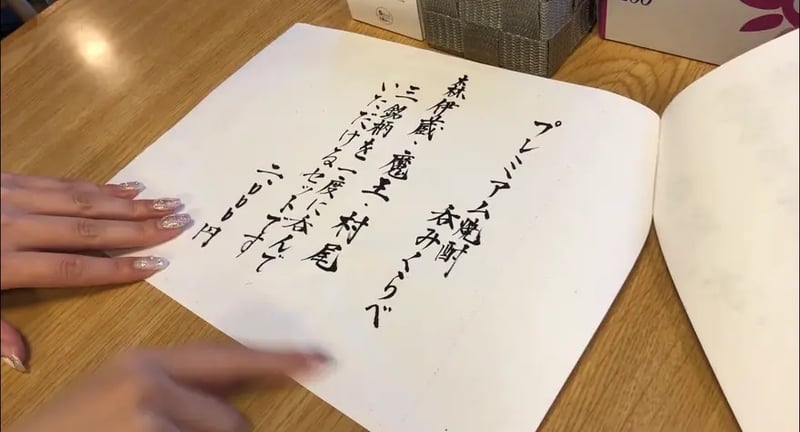 プレミアム焼酎
呑みくらべ
森伊蔵、魔王、村尾
三銘柄を一度に呑んで
いただけるセットです
二、〇〇〇円